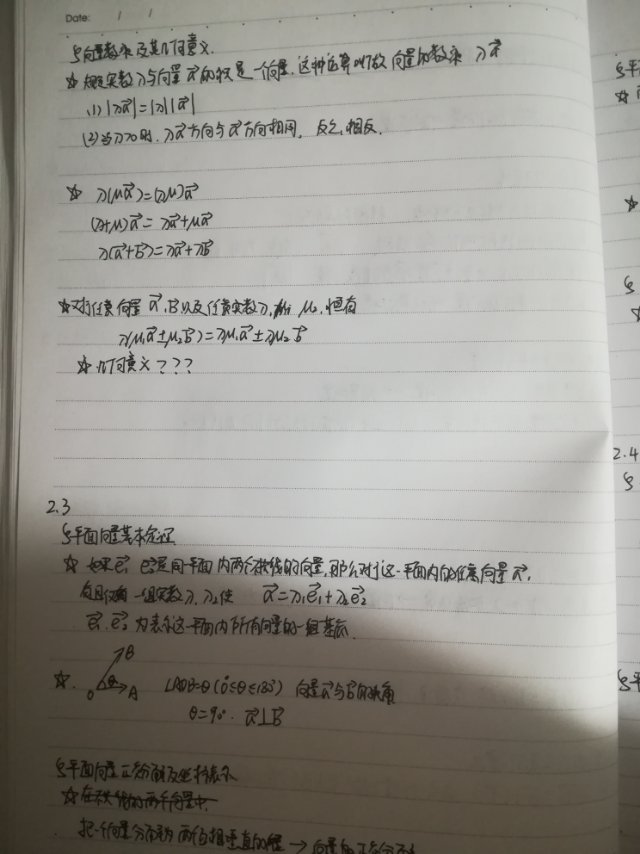 Date: / /
§向量数乘及其几何意义.
☆ 规定实数λ与向量a⃗的积是一个向量.这种运算叫做 向量的数乘 λa⃗
(1) |λa⃗|=|λ||a⃗|
(2)当λ>0时. λa⃗方向与a⃗方向相同, 反之,相反.
☆ λ(μa⃗)=(λμ)a⃗
(λ+μ)a⃗=λa⃗+μa⃗
λ(a⃗+b⃗)=λa⃗+λb⃗
☆对于任意向量a⃗,b⃗以及任意实数λ,μ₁,μ₂,恒有
λ(μ₁a⃗±μ₂b⃗)=λμ₁a⃗±λμ₂b⃗
☆几何意义???
2.3
§平面向量基本定理
☆ 如果e₁⃗ e₂⃗是同一平面内两个不共线的向量,那么对于这一平面内的任意向量a⃗,
有且仅有一组实数λ₁λ₂使 a⃗=λ₁e₁⃗+λ₂e₂⃗
e₁⃗.e₂⃗ 为表示这一平面内所有向量的一组基底
☆. B θ O A ∠AOB=θ(0°≤θ≤180°) 向量a⃗与b⃗的夹角
θ=90°. a⃗⊥b⃗
§平面向量正交分解及坐标表示
☆在不共线的两个向量中.
把一个向量分解为两个互相垂直的向量→向量的正交分解
2.4
§
§平